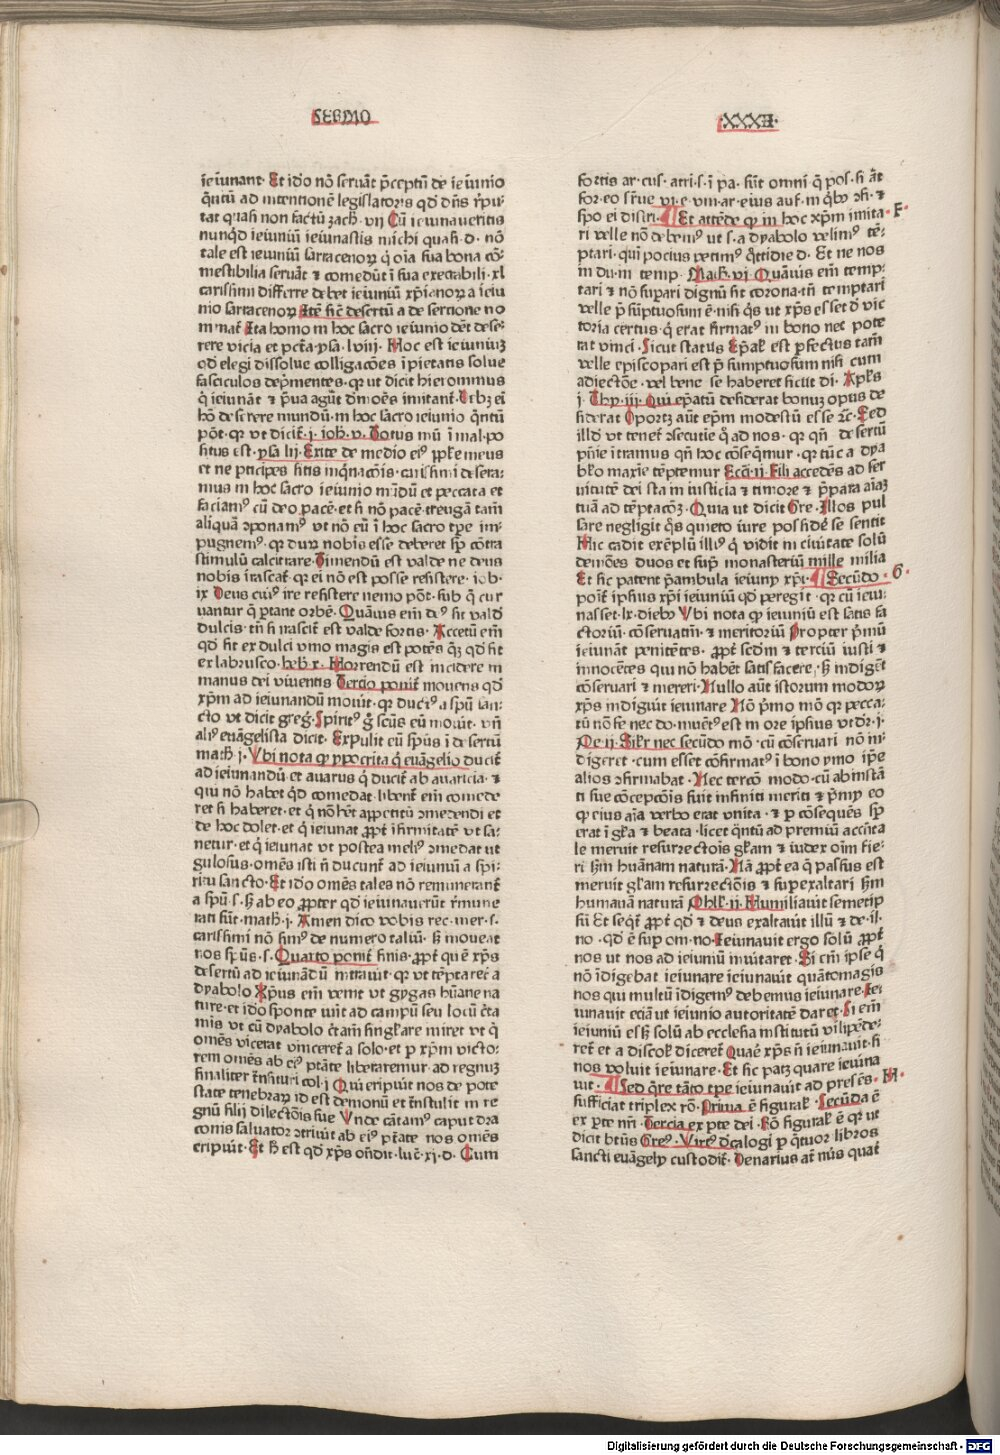 SERMO
XXXII.
ieiunant. Et iďo nō seruāt p̄ceptū de ieiunio
q̄ntū ad intentionē legislatoris qď dn̄s r̄pu-
tat quasi non factū zach. vij Cū ieiunaueritis
nunqď ieiuniū ieiunastis michi quasi. d. nō
tale est ieiuniū sarracenoꝝ q̄ oīa sua bona cō-
mestibilia seruāt & comedūt ī sua execrabili. xl
carissimi differre debet ieiuniū xp̄ianoꝝ a ieiu
nio sarracenoꝝ Itē hֿc desertū a de sertione no
minat̄ Ita homo in hoc sacro ieiunio dꝫt dese-
rere vicia et pctā. psa. lviij. Hoc est ieiuniuꝫ
qď elegi dissolue colligacōes īpietatis solue
fasciculos dep̄mentes. qꝛ ut dicit hieronimus
q̄ ieiunāt & p̄ua agūt dēmōes imitant̄. Vrbꝫ eī
hō de serere mundū. in hoc sacro ieiunio q̄ntū
pōt. qꝛ vt dicit̄. j. ioh. v. Totus mū. ī mal. po
situs est. psa lij. Exite de medio eiꝰ pp̄le meus
et ne pticipes sitis inq̄nacōis. carissimi desera-
mus in hoc sacro ieiunio mūdū et peccata et
faciamꝰ cū deo pacē. et si nō pacē. treugā tam̄
aliquā ↄponamꝰ vt nō eū ī hoc sacro tpe im-
pugnemꝰ. qꝛ duꝝ nobis esse deberet sp̄ cōtra
stimulū calcitrare. Timendū est valde ne deus
nobis irascat̄. qꝛ ei nō est posse resistere. iob.
ix Deus cuiꝰ ire resistere nemo pōt. sub q̄ cur
vantur q̄ portant orbē. Quāuis em̄ dꝰ sit valď
dulcis. tn̄ si irascit̄ est valde fortis. Accetū em̄
qď fit ex dulci vino magis est potēs q̄ꝫ qď fit
ex labrusco. heb̄. x. Horrendū est incidere in
manus dei viuentis Tercio ponit̄ mouens qď
xp̄m ad ieiunandū mouit. qꝛ ductꝰ a spū san-
cto vt dicit greg. Spiritꝰ g̃ scūs eū mouit. vn̄
aliꝰ euāgelista dicit. Expulit eū sp̄us ī de sertū
math̄. j. Vbi nota qꝛ ypocrita q̄ euāgelio ducit̄
ad ieiunandū. et auarus q̄ ducit̄ ab auaricia. &
qui nō habet qď comedat. libent̄ em̄ comede
ret si haberet. et q̄ nō hēt appetitū ↄmedendi et
de hoc dolet. et q̄ ieiunat p̄pt̄ īfirmitatē vt sa-
netur. et q̄ ieiunat vt postea meliꝰ ↄmedat ut
gulosus. omēs isti n̄ ducunt̄ ad ieiuniū a spi-
ritu sancto. Et iďo omēs tales nō remunerant̄
a spū. s. sꝫ ab eo p̄pter qď ieiunauerūt r̄mune
rati sūt. math̄. j. Amen dico vobis rec. mer. s.
carissimi nō simꝰ de numero taliū. sꝫ moueat
nos sp̄us. s. Quarto ponit̄ finis. p̄pt̄ quē xp̄s
desertū ad ieiunādū intrauit. qꝛ vt tēptaret̄ a
dyabolo Xp̄us em̄ venit vt gygas hūane na
ture. et iďo sponte uīit ad campū seu locū c̄ta
mis vt cū dyabolo c̄tam̄ singl̄are iniret vt q̄
omēs vicerat vinceret̄ a solo. et p xp̄m victo-
rem omēs ab eiꝰ ptāte liberaremur. ad regnuꝫ
finaliter t̄nsituri col. j Qui eripuit nos de pote
state tenebraꝝ id est demonū et t̄nstulit in re
gnū filij dilectōis sue Vnde cātamꝰ caput dra
conis saluator ↄtriuit ab eiꝰ ptate nos omēs
eripuit. Et hֿ est qď xp̄s on̄dit. luc̄. xj. d. Cum
fortis ar. cus. atri. s. ī pa. sūt omni q̄ pos. si āt
for. eo sr̄ue vi. e. vni. ar. eius auf. in q̄bꝰ ↄfi. &
spo ei distri. ¶ Et attēde qꝛ in hoc xp̄m imita- F.
ri velle nō debemꝰ ut s. a dyabolo velimꝰ tē-
ptari. quī pocius petimꝰ q̄ttidie d. Et ne nos
in du. in temp. Math̄. vi Quāuis em̄ temp-
tari & nō supari dignū sit corona. tn̄ temptari
velle p̄ sūptuosum ē. nisi q̄s ut xp̄s esset ď vic
toria certus. q̄ erat firmatꝰ in bono nec pote
rat vinci. Sicut status Ep̄al̄ est pfectus tam̄
velle ep̄iscopari est p̄ sumptuosum nisi cum
adiectōe. vel bene se haberet sicut di. Apl̄s
j. Thy. iij. Qui ep̄atū desiderat bonuꝫ opus de
siderat Oportꝫ aūt ep̄m modestū esse ꝛc̄. Sed
illď vt tenet̄ ↄsecutie q̄ ad nos. qꝛ qn̄ desertū
pn̄ie ītramus qn̄ hoc cōseq̄mur. qꝛ tūc a dya
blo maxie tēptemur Ecci. ij. Fili accedēs ad ser
uitutē dei sta in iusticia & timore & p̄para aīaꝫ
tuā ad tēptacōꝫ. Quia ut dicit Gre. Illos pul
sare negligit q̄s quieto iure possidē se sentit
Hic cadit exēplū illiꝰ q̄ vidit in ciuitate solū
demōes duos et sup̄ monasteriū mille milia
Et sic patent p̄ambula ieiunij xp̄i. ¶ Secūdo. G.
ponit̄ ipsius xp̄i ieiuniū qď peregit. qꝛ cū ieiu
nasset. lx. diebꝰ Vbi nota qꝛ ieiuniū est satis fa
ctoriū. cōseruatiū. & meritoriū Propter p̄mū
ieiunāt penitētes. p̄pt̄ secdm̄ & terciū iusti &
innocētes qui nō habēt satis facere. sꝫ indigēt
cōseruari & mereri. Nullo aūt istorum modoꝝ
xp̄s indiguit ieiunare Nō p̄mo mō qꝛ pecca-
tū nō fe nec do. inuētꝰ est in ore ipsius vt dꝛ. j.
Pe. ij. Sil̄r nec secūdo mō. cū cōseruari nō in-
digeret. cum esset cōfirmatꝰ ī bono ymo ip̄e
alios ↄfirmabat. Nec tercō modo. cū ab instā
ti sue cōcepcōis fuit infiniti meriti & p̄mij eo
qꝛ eius aīa verbo erat vnita. & p cōsequēs sp̄
erat ī gl̄ia & beata. licet q̄ntū ad premiū acc̄nta
le meruit resurrectōis gl̄iam & iudex oīm fie-
ri sꝫm huānam naturā. Nā p̄pt̄ ea q̄ passus est
meruit gl̄iam resurrectōis & supexaltari sꝫm
humanā naturā Phl̄. ij. Humiliauit semetip
sū Et seq̄t̄ p̄pt̄ qď & deus exaltauit illū & de. il.
no. qď ē sup̄ om. no. Ieiunauit ergo solū p̄pt̄
nos ut nos ad ieiuniū inuitaret. Si em̄ ipse q̄
nō īdigebat ieiunare ieiunauit quātomagis
nos qui multū īdigemꝰ debemus ieiunare. Ie-
iunauit eciā ut ieiunio autoritatē daret. Si em̄
ieiuniū essꝫ solū ab ecclesia institutū vilipēde-
ret̄ et a discol̄ diceret̄ Quaē xp̄s n̄ ieiunauit. si
nos voluit ieiunare. Et sic patꝫ quare ieiuna
uit. ¶ Sed q̄re tāto tpe ieiunauit ad presēs. H.
sufficiat triplex rō. Prima ē figural̄. Secūda ē
ex pte nr̄i. Tercia ex pte dei. Rō figural̄ ē qꝛ ut
dicit btūs Greꝰ. Virtꝰ dcalogi p q̄tuor libros
sancti euāgelij custodit̄. Denarius aūt nūs quat̄
Digitalisierung gefördert durch die Deutsche Forschungsgemeinschaft - DFG